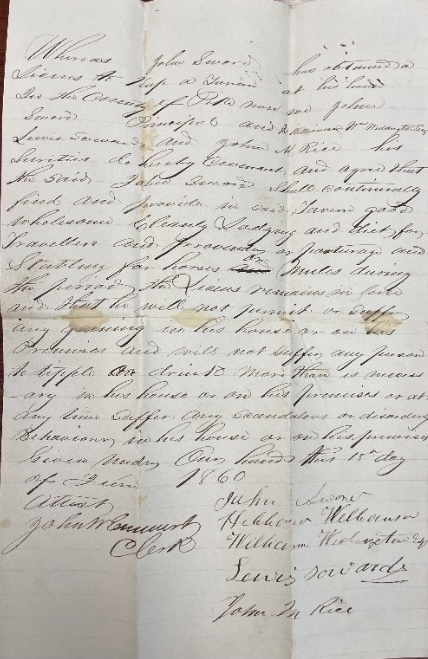 Whereas John Sword has obtained a
Licens to Kep a Tavern at his house
In the County of Pike now we John
Sword Principal and Wm
Lewis Soward and John M Rice his
Surities do hereby Covenant and agree that
the said John Sword shall continually
find and provide in said Tavern good
wholesome Cleanly Lodging and diet for
Travellers and provender or pasturage and
Stabling for horses or Mules during
the period the Licens remains in force
and that he will not permit or suffer
any gaming in his house or on his
Premises and will not suffer any person
to tipple or drink more than is necess
ary in his house or on his premises or at
any time suffer any scandalous or disorderly
Behaviour in his house or on his premises
Given under Our hands this 15 day
of 1860
Attest John Sword
John Williamson
Clerk William
Lewis Soward
John M Rice